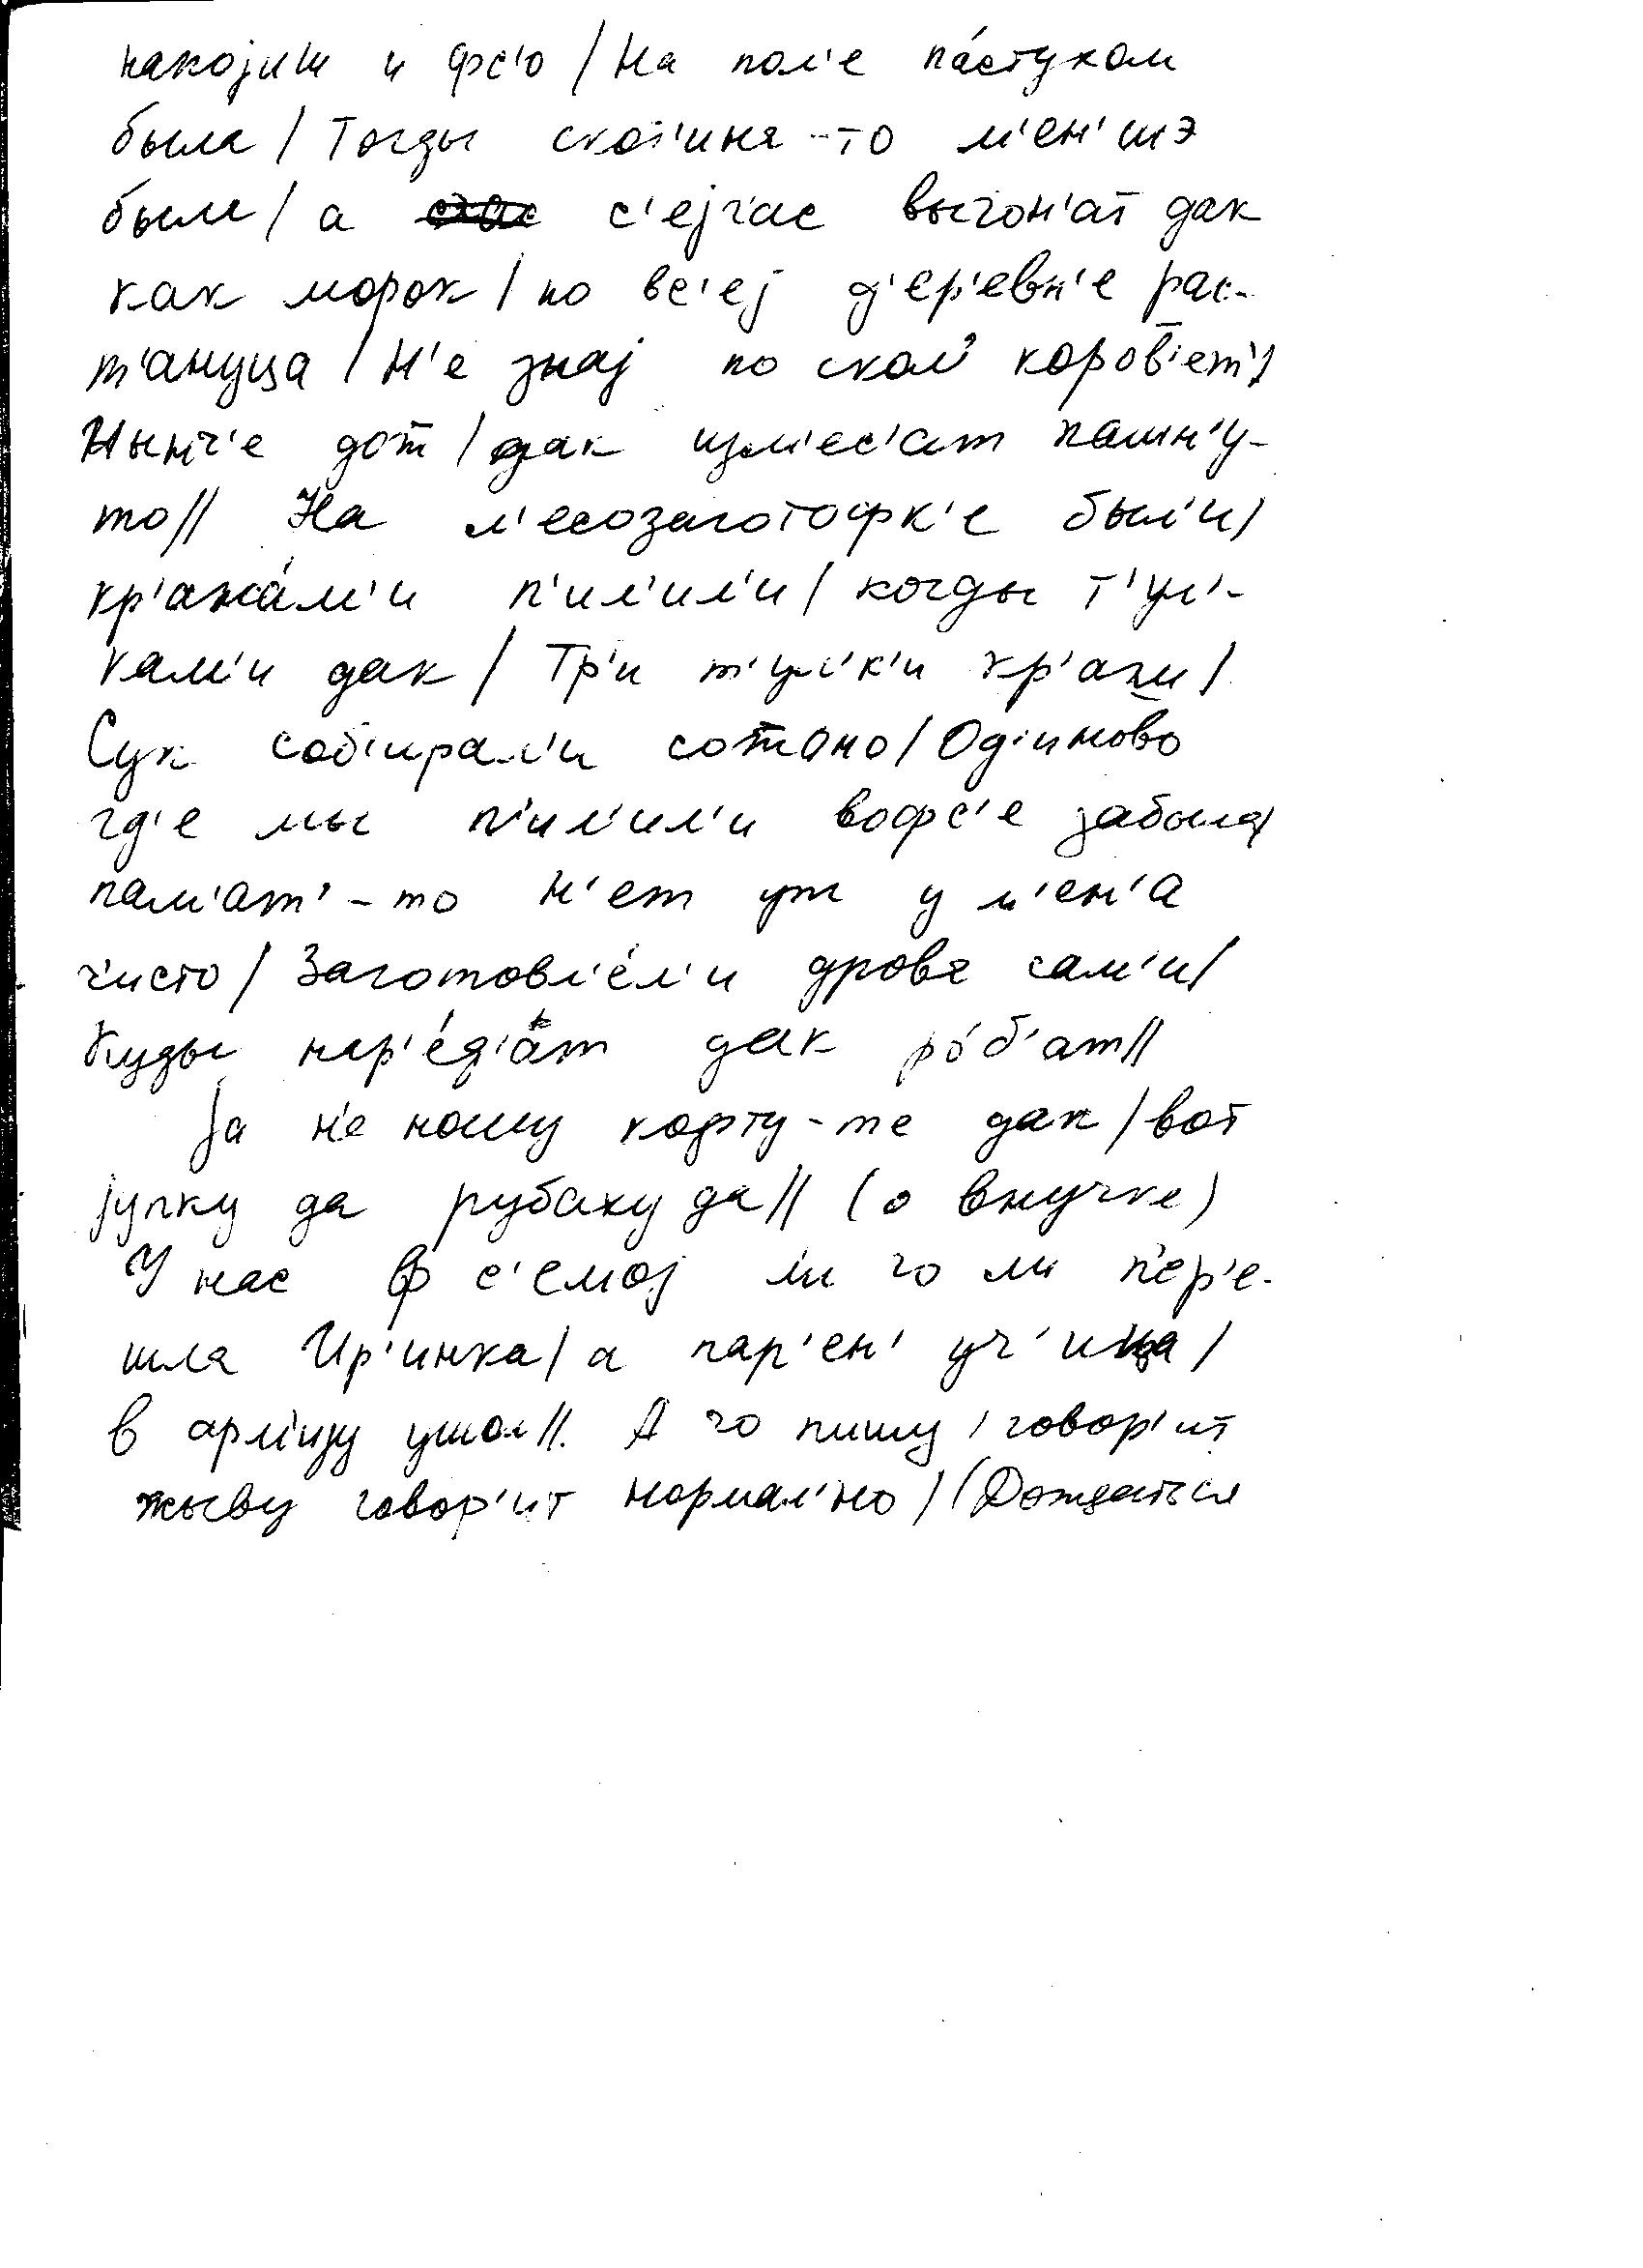 накоjиш и фс'о / На пол'е па́стухом
была / Тогды скот'ина-то м'ен'шэ
была / а с'еjч'ас выгон'ат дак
как морок / по вс'еj д'ер'евн'е рас-
т'ануца / Н'е знаj по скол' коров'ет' /
Нынч'е дот / дак изм'ес'ат пашн'у-
то // На л'есозаготофк'е был'и /
кр'ажа́м'и п'ил'ил'и / когды т'ул'-
кам'и дак / Тр'и т'ул'к'и кр'аж /
Сук соб'ирал'и сотоно / Од'иново
гд'е мы п'ил'ил'и вофс'е забыла /
пам'ат'-то н'ет уж у м'ен'а
ч'исто / Заготовл'е́л'и дрова сам'и /
Куды нар'е́д'ат дак ро́б'ат //
Jа н'е ношу кофту-те дак / вот
jупку да рубаху да // (о внучке)
У нас ф с'емоj ли чо ли п'ер'е-
шла Ир'инка / а пар'ен' уч'ица /
в арм'иjу ушол //. А чо пишу / говор'ит
жыву говор'ит нормал'но / (Дождаться